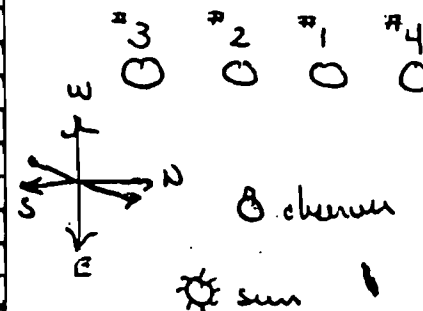 #3 #2 #1 #4
W
S N
observer
E
sun